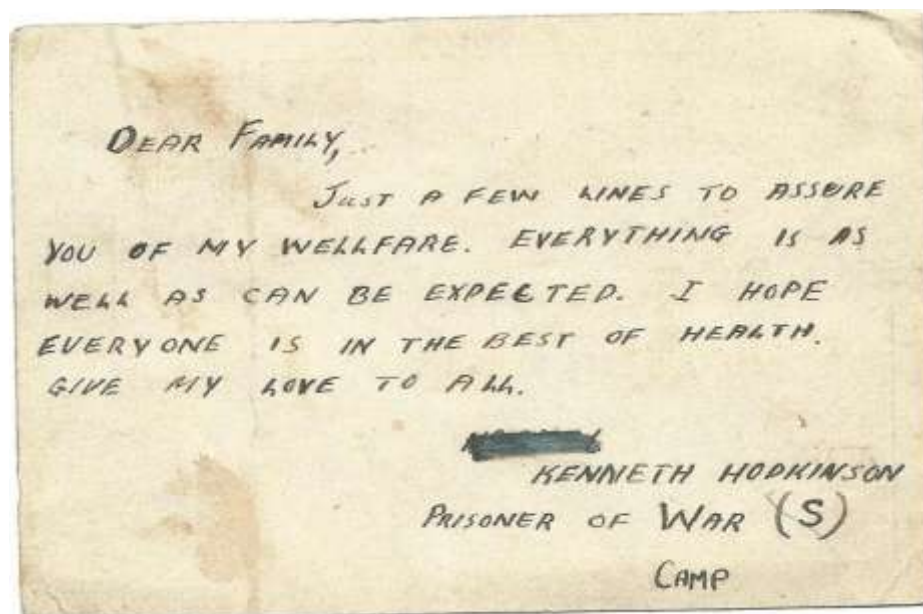 DEAR FAMILY,
JUST A FEW LINES TO ASSURE
YOU OF MY WELLFARE. EVERYTHING IS AS
WELL AS CAN BE EXPECTED. I HOPE
EVERYONE IS IN THE BEST OF HEALTH.
GIVE MY LOVE TO ALL.
KENNETH HODKINSON
PRISONER OF WAR (S)
CAMP